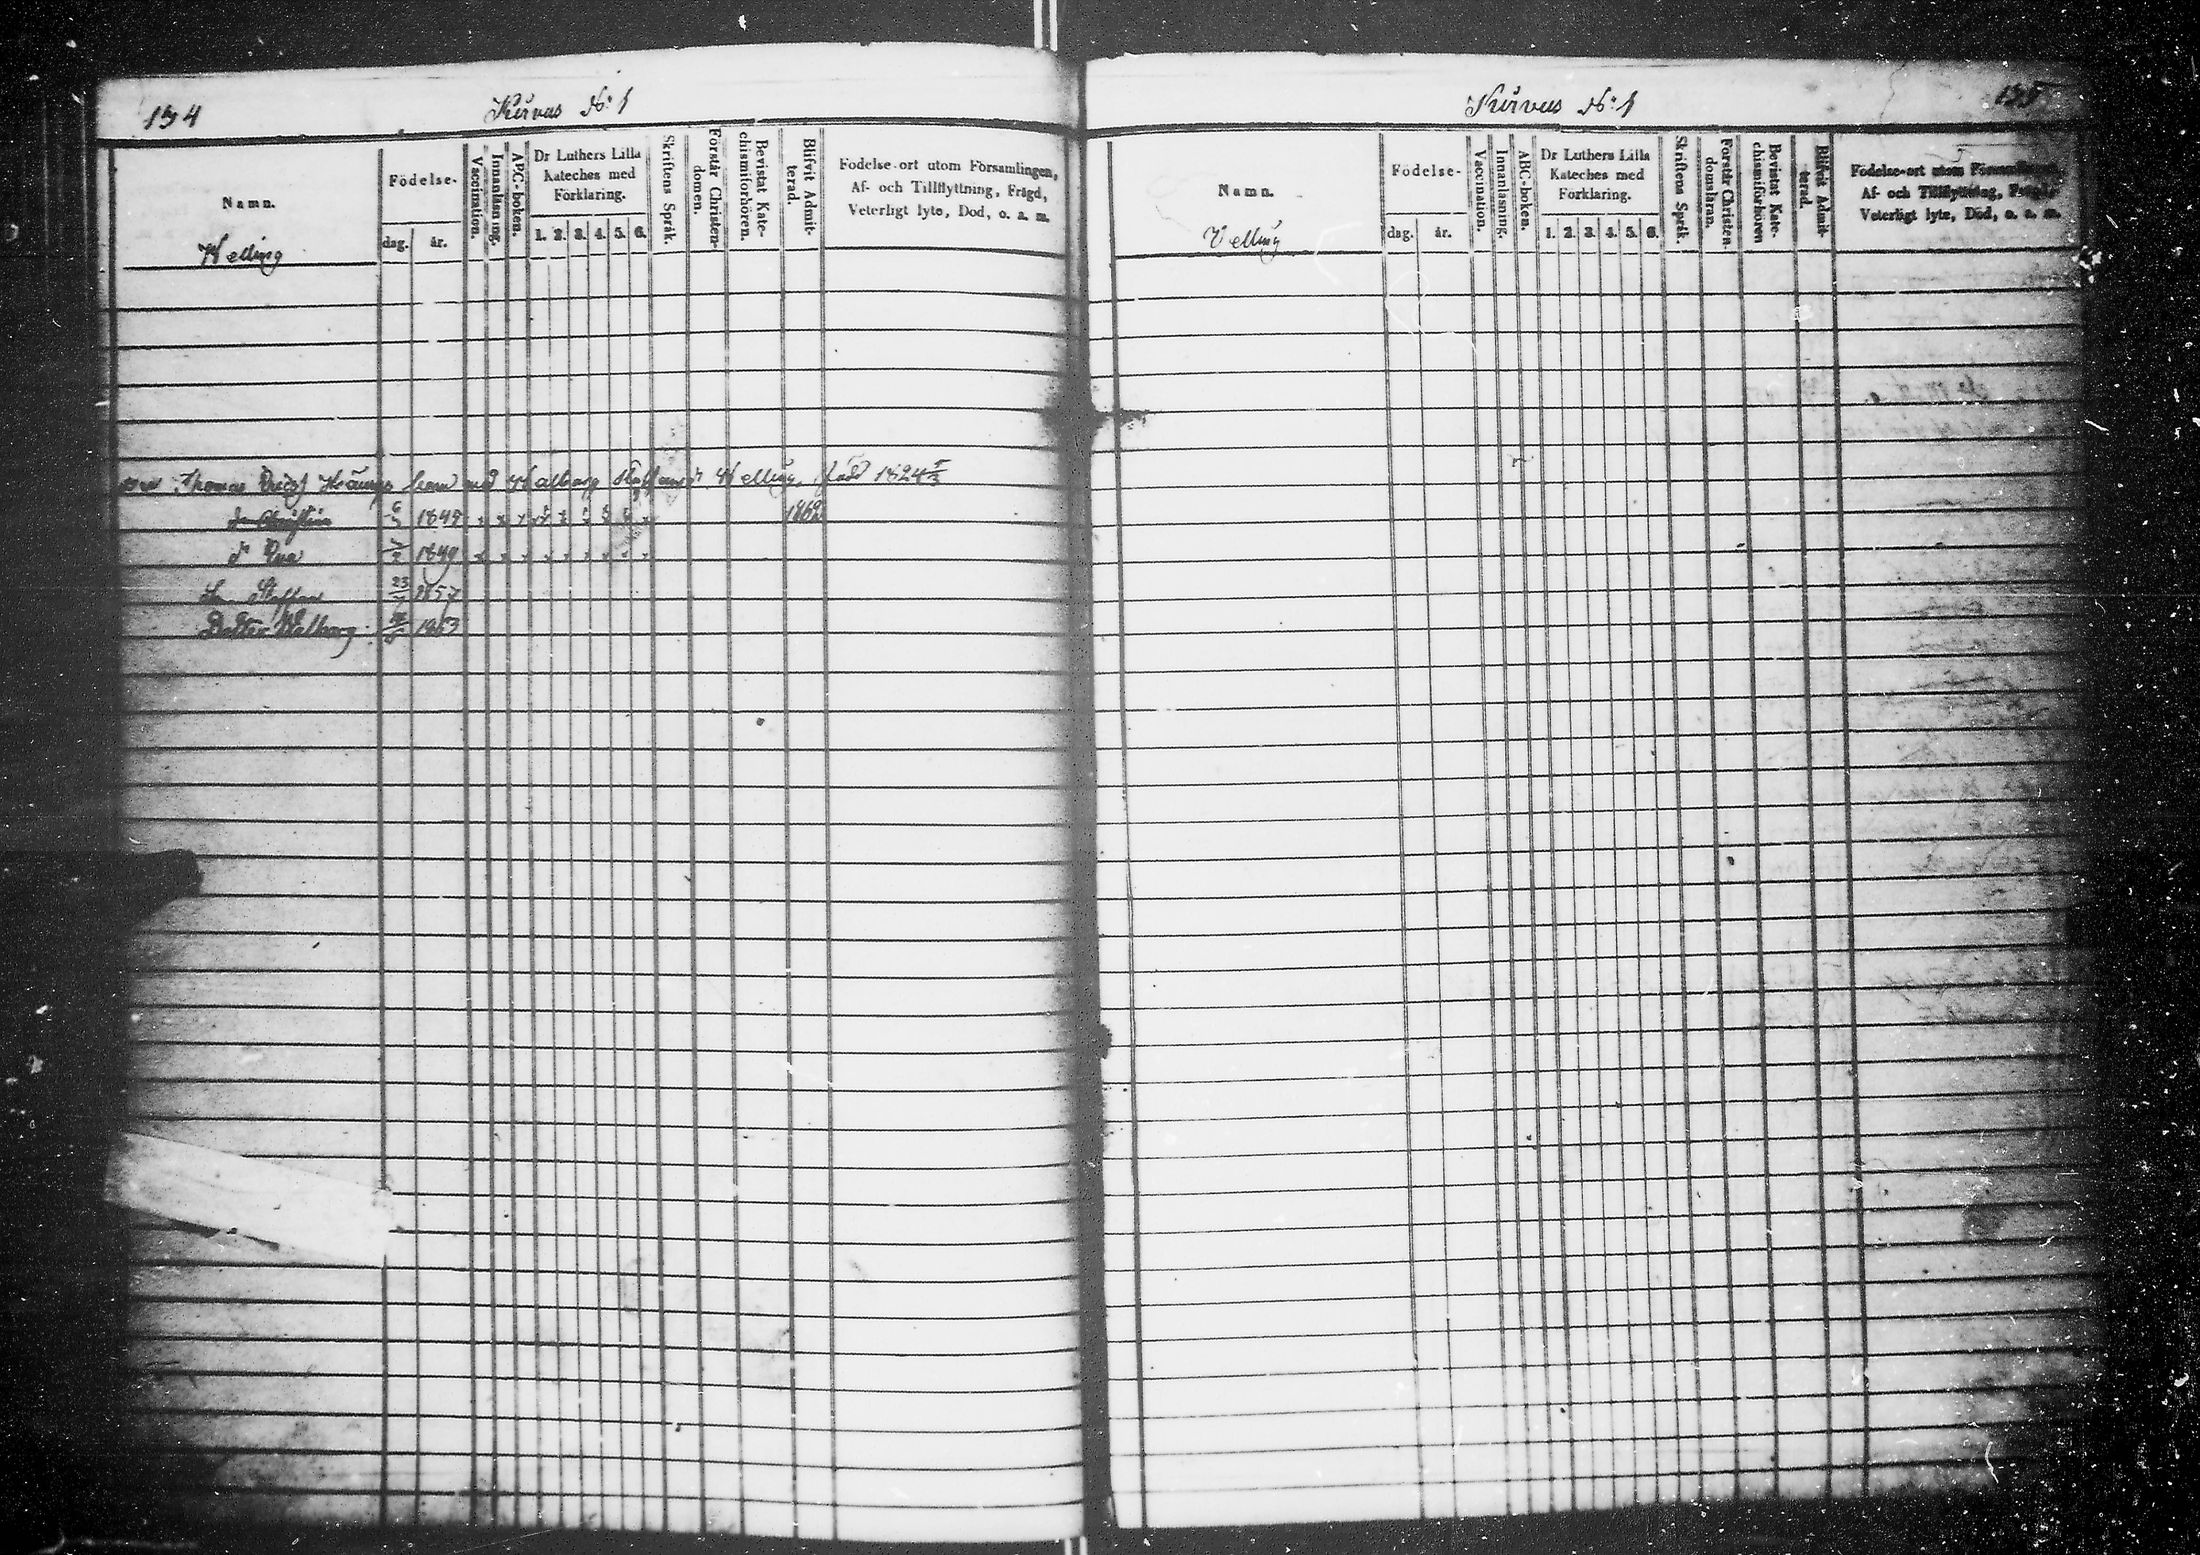 134
Kurvus No: 1
Namn.
Welling
Födelse-
dag.
år.
Vaccination.
Innanläsning.
ABC-boken.
Dr Luthers Lilla
Kateches med
Förklaring.
1. 2. 3. 4. 5. 6.
Skriftens Språk.
Förstår Christen-
domen.
Bevistat Kate-
chismiförhören.
Blifvit Admit-
terad.
Födelse-ort utom Församlingen,
Af- och Tillflyttning, Frägd,
Veterligt lyte, Död, o. a. m.
Thomas Welling född 1824
1845 1862
d:r 1849
23 1857
Dotter Walborg 1863
135
Kurvus No: 1
Namn.
Velling
Födelse-
dag.
år.
Vaccination.
Innanläsning.
ABC-boken.
Dr Luthers Lilla
Kateches med
Förklaring.
1. 2. 3. 4. 5. 6.
Skriftens Språk.
Förstår Christen-
domsläran.
Bevistat Kate-
chismiförhören
Blifvit Admit-
terad.
Födelse-ort utom Församlingen,
Af- och Tillflyttning, Frägd,
Veterligt lyte, Död, o. a. m.